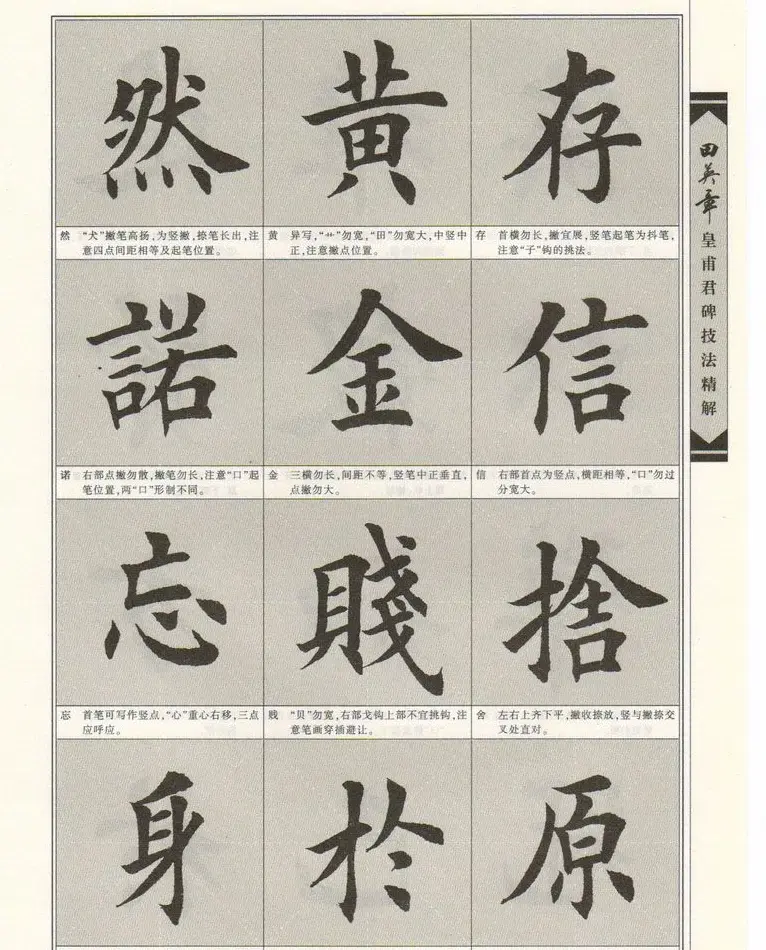 田英章 皇甫君碑技法精解
存
存 首横勿长，撇宜展，竖笔起笔为抖笔，
注意“子”钩的挑法。
信
信 右部首点为竖点，横距相等，“口”勿过
分宽大。
捨
舍 左右上齐下平，撇收捺放，竖与撇捺交
叉处直对。
原
黄
黄 异写，“艹”勿宽，“田”勿宽大，中竖中
正，注意撇点位置。
金
金 三横勿长，间距不等，竖笔中正垂直，
点撇勿大。
賤
贱 “贝”勿宽，右部戈钩上部不宜挑钩，注
意笔画穿插避让。
於
然
然 “犬”撇笔高扬，为竖撇，捺笔长出，注
意四点间距相等及起笔位置。
諾
诺 右部点撇勿散，撇笔勿长，注意“口”起
笔位置，两“口”形制不同。
忘
忘 首笔可写作竖点，“心”重心右移，三点
应呼应。
身